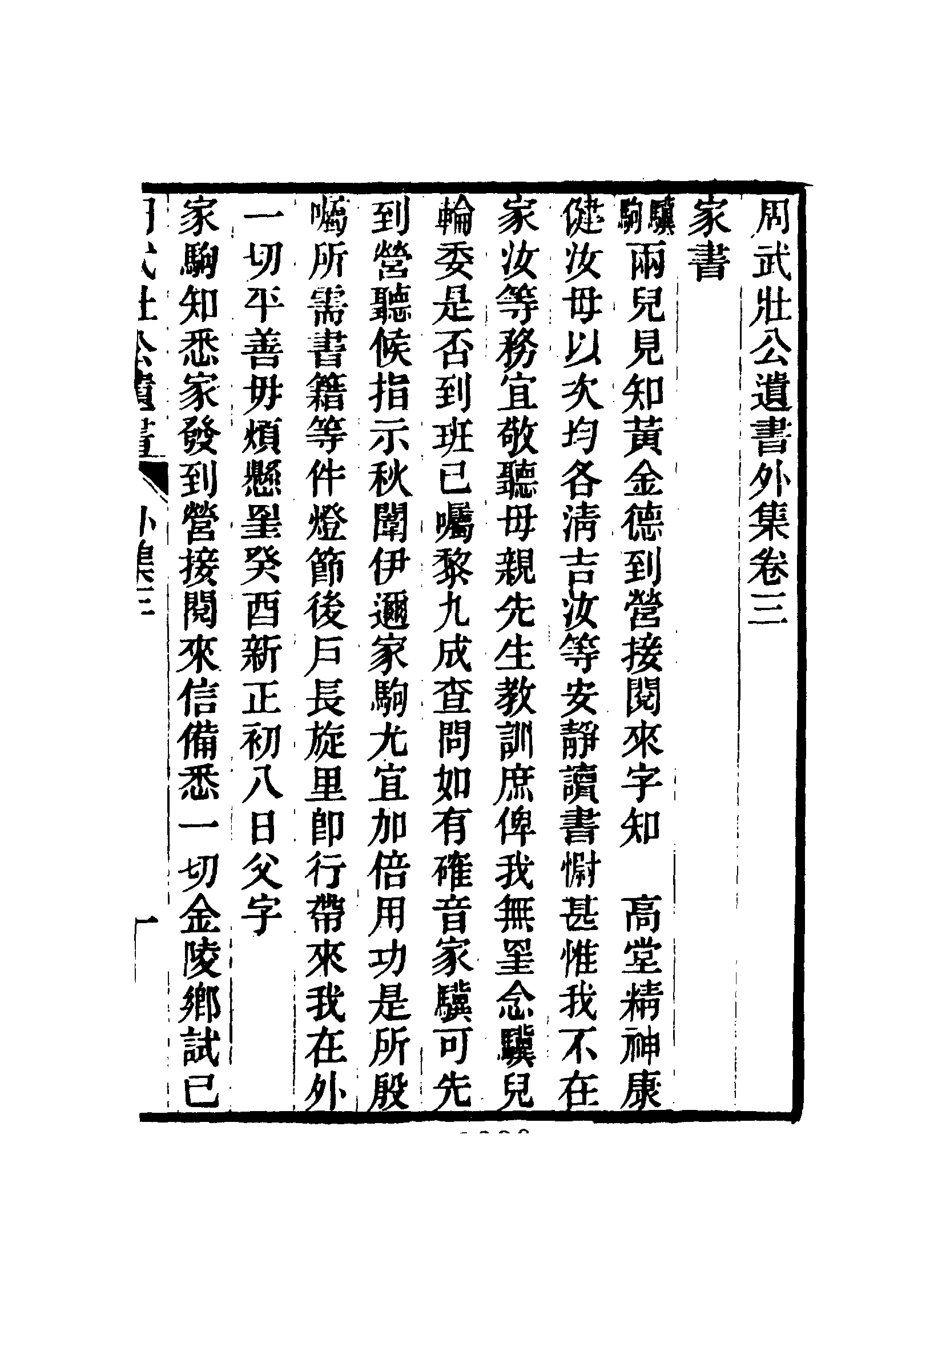 周武壯公遺書外集卷三
家書
驥駒兩兒見知黃金德到營接閱來字知　高堂精神康
健汝母以次均各淸吉汝等安靜讀書慰甚惟我不在
家汝等務宜敬聽母親先生教訓庶俾我無罣念驥兒
輪委是否到班已囑黎九成查問如有確音家驥可先
到營聽候指示秋闈伊邇家駒尤宜加倍用功是所殷
囑所需書籍等件燈節後戶長旋里卽行帶來我在外
一切平善毋煩懸罣癸酉新正初八日父字
家駒知悉家發到營接閱來信備悉一切金陵鄉試已
周武壯公遺書
外集三
一